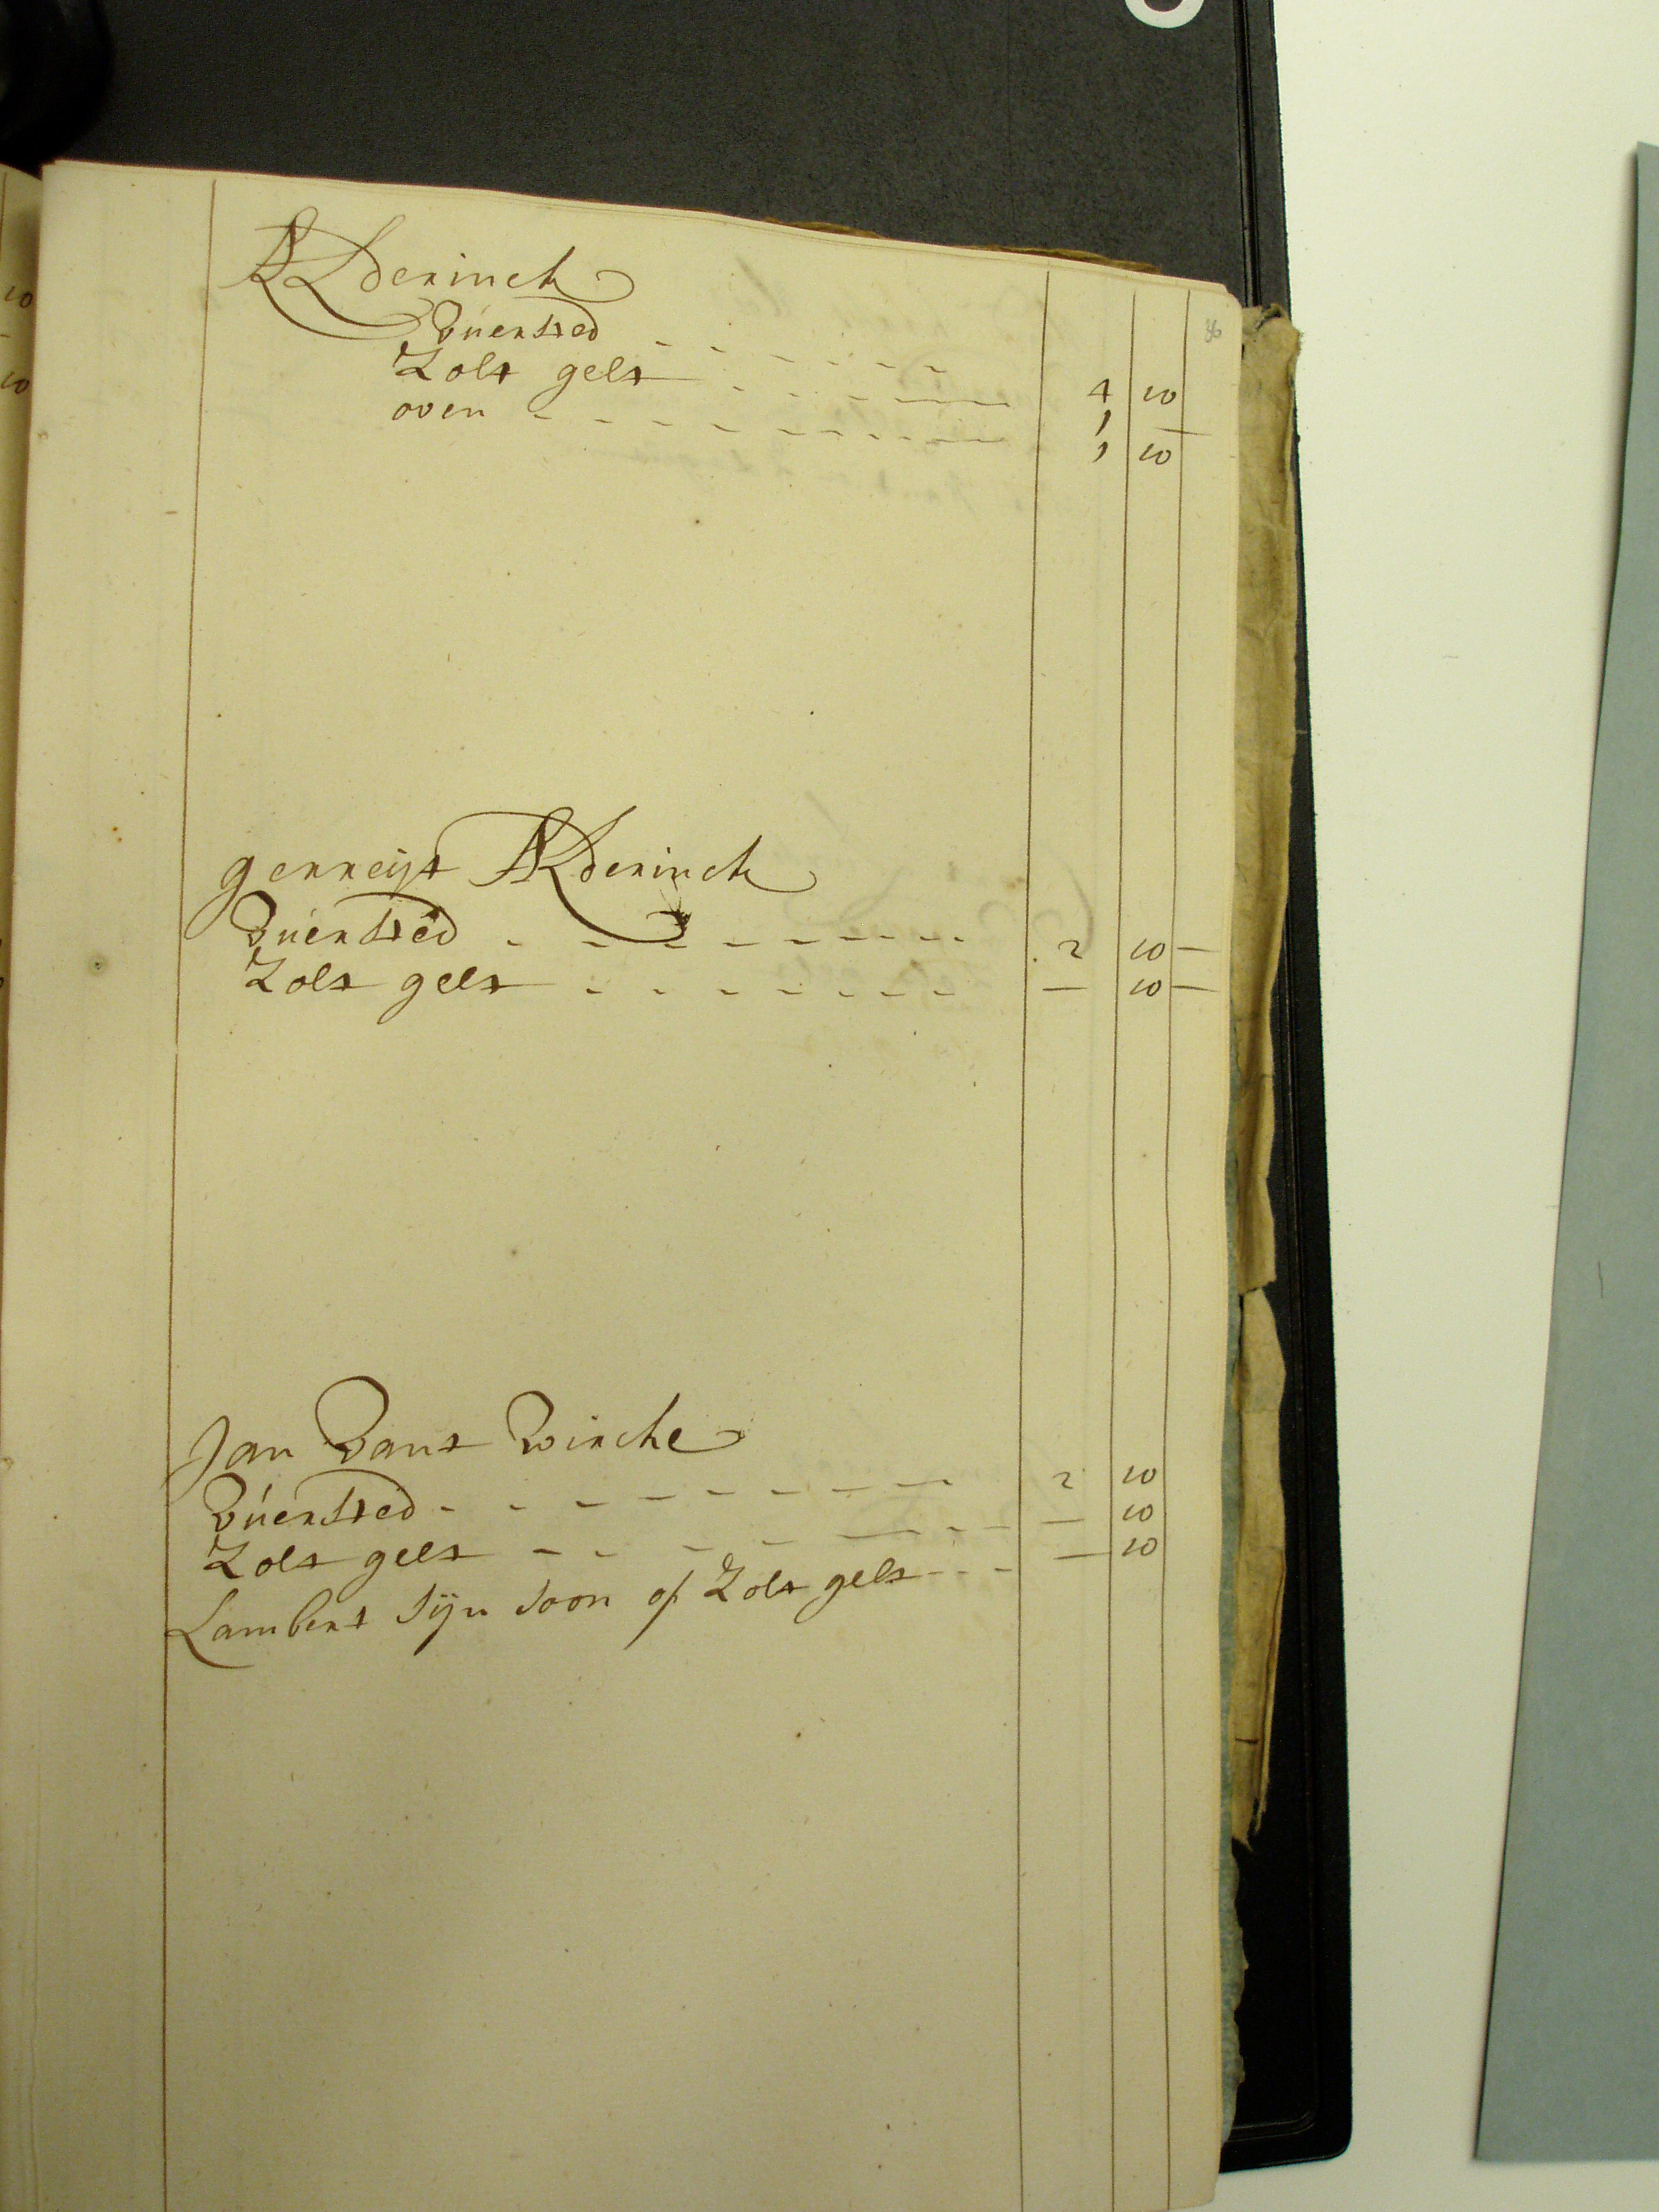 36
Alderinck
vuersted - - - - - - 4 10
Zolt gelt - - - - - - 1 —
oven - - - - - - - - 1 10
gerreijt Alderinck
vuersted - - - - - - - - 2 10 —
Zolt gelt - - - - - - - — 10 —
Jan Vant Virche
vuersted - - - - - - - - 2 10
Zolt gelt - - - - - - - — 10
Lambert sijn soon of Zolt gelt - - - — 10